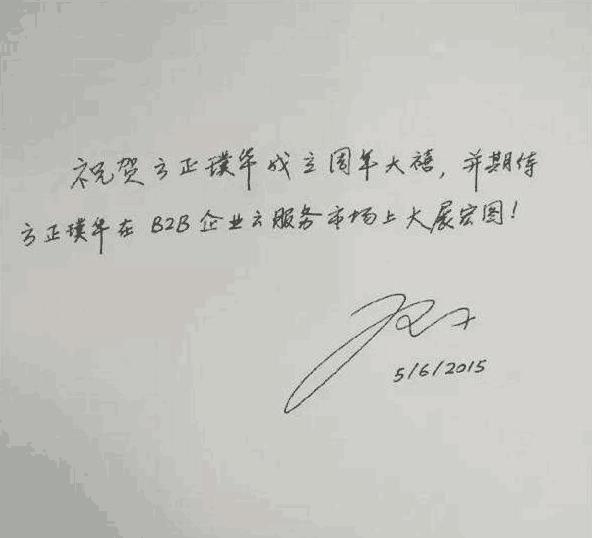 祝贺方正璞华成立周年大禧，并期待
方正璞华在B2B企业云服务市场上大展宏图！
5/6/2015